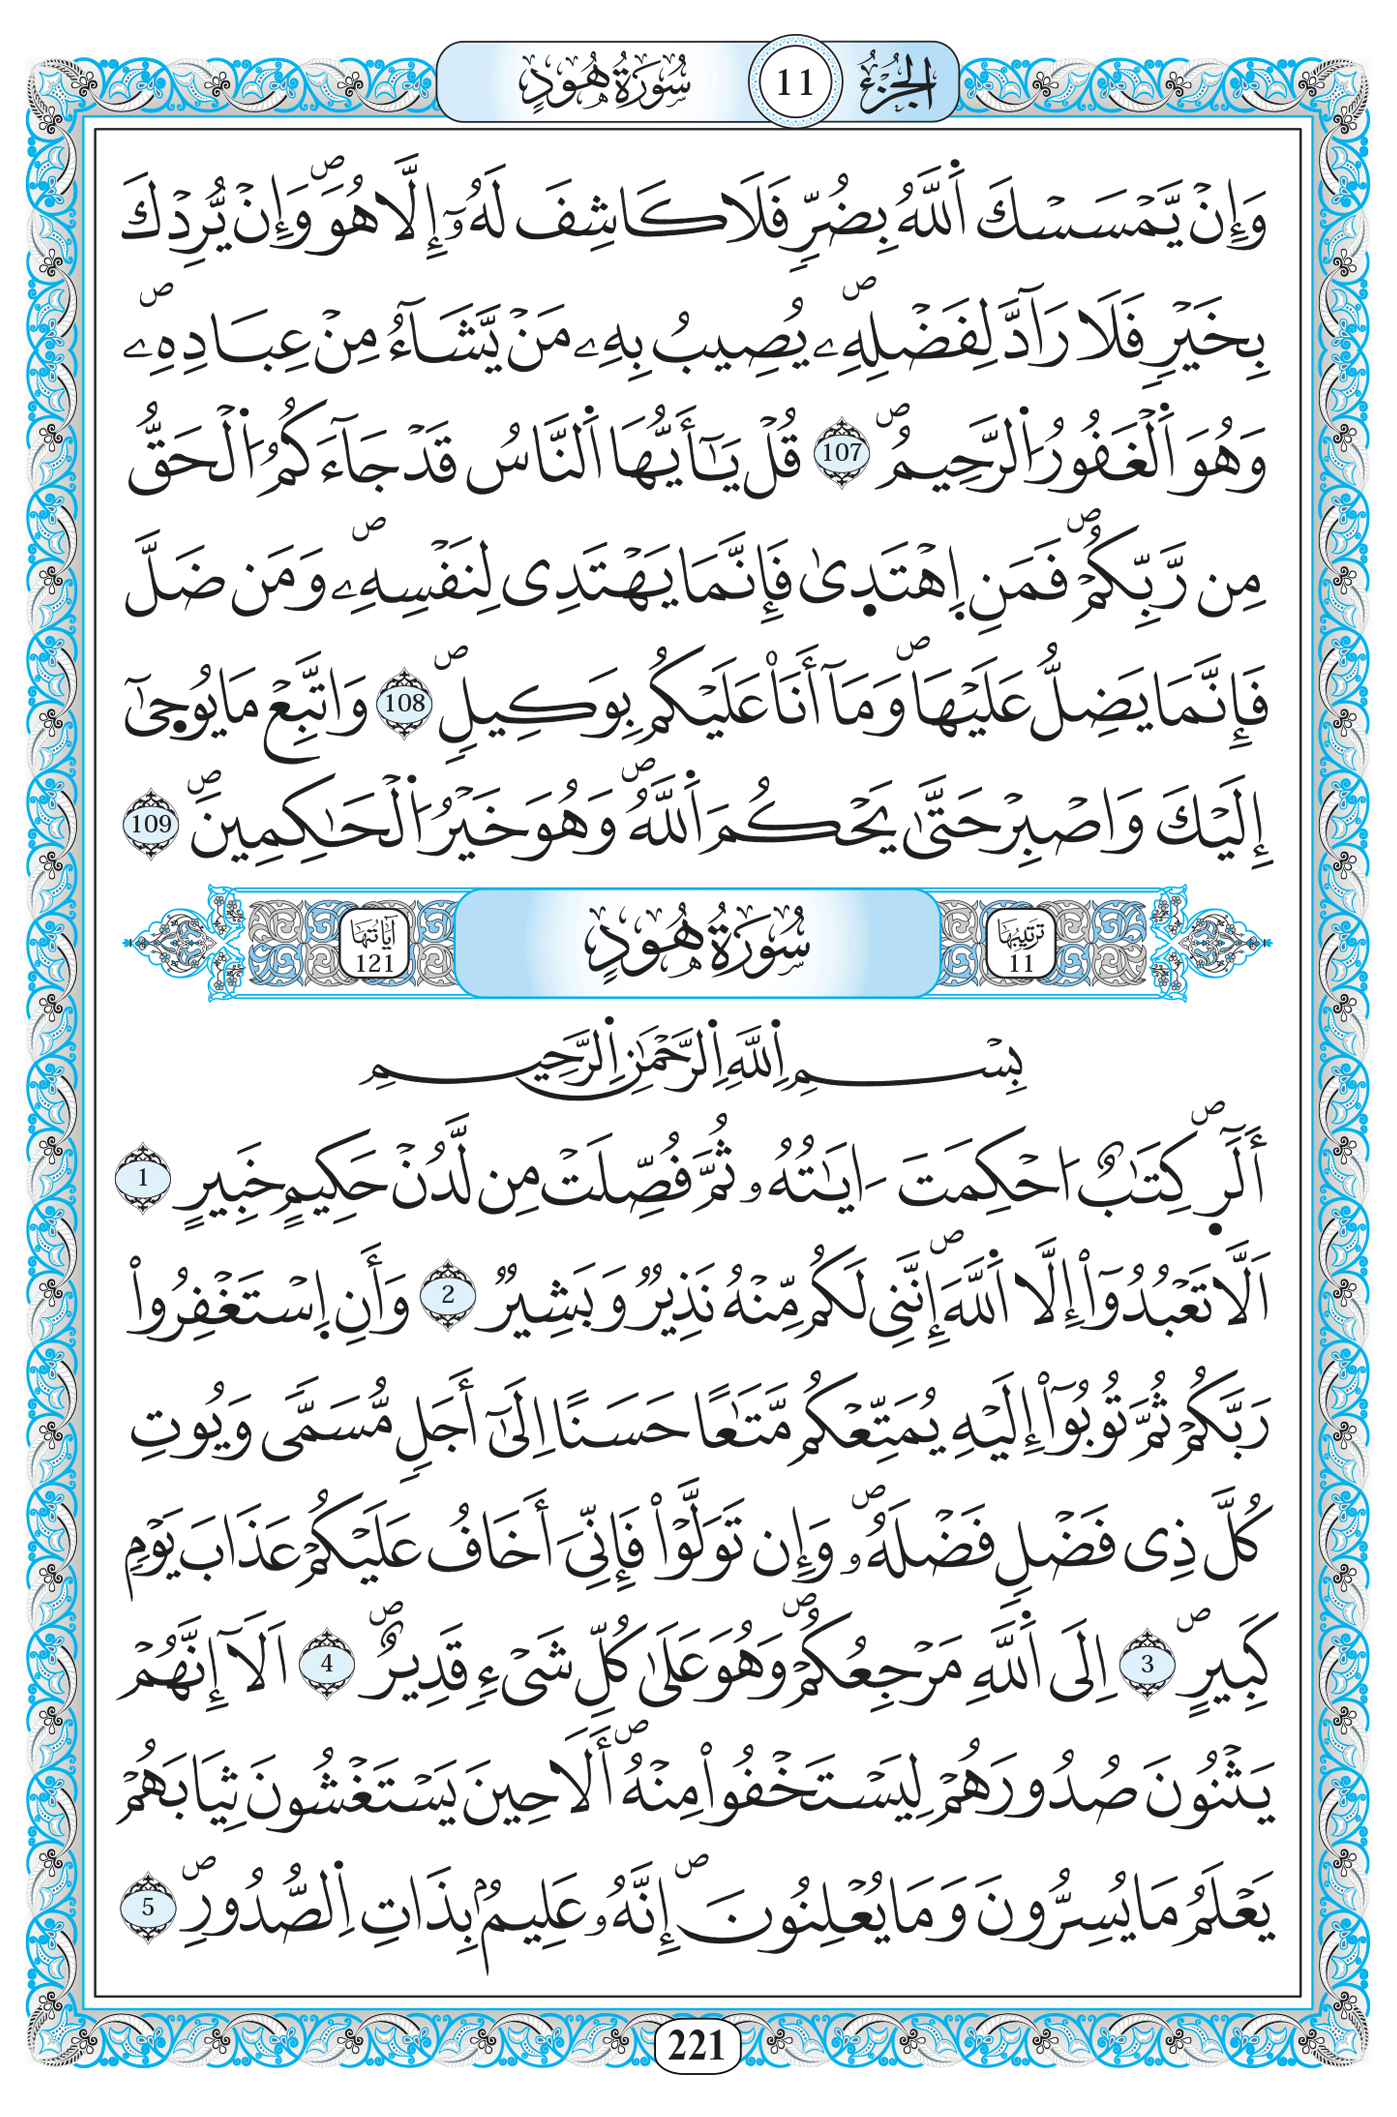 الجزء 11 سورة هود
وَإِنْ يَّمْسَسْكَ اَللَّهُ بِضُرٍّ فَلَا كَاشِفَ لَهُۥٓ إِلَّا هُوَۖ وَإِنْ يُّرِدْكَ
بِخَيْرٍ فَلَا رَآدَّ لِفَضْلِهِۦۖ يُصِيبُ بِهِۦ مَنْ يَّشَآءُ مِنْ عِبَادِهِۦۖ
وَهُوَ اَلْغَفُورُ اُلرَّحِيمُۖ 107 قُلْ يَـٰٓأَيُّهَا اَلنَّاسُ قَدْ جَآءَكُمُ اُلْحَقُّ
مِن رَّبِّكُمْۖ فَمَنِ اِهْتَدٜىٰ فَإِنَّمَا يَهْتَدِى لِنَفْسِهِۦۖ وَمَن ضَلَّ
فَإِنَّمَا يَضِلُّ عَلَيْهَاۖ وَمَآ أَنَا۠ عَلَيْكُم بِوَكِيلٍۖ 108 وَاتَّبِعْ مَا يُوحٜىٰٓ
إِلَيْكَ وَاصْبِرْ حَتَّىٰ يَحْكُمَ اَللَّهُۖ وَهُوَ خَيْرُ اُلْحَـٰكِمِينَۖ 109
ترتيبها 11 سورة هود آياتها 121
بِسْمِ اِللَّهِ اِلرَّحْمَـٰنِ اِلرَّحِيمِ
أَلَٓرٜۖ كِتَـٰبٌ اُحْكِمَتَ ـ اٰيَـٰتُهُۥ ثُمَّ فُصِّلَتْ مِن لَّدُنْ حَكِيمٍ خَبِيرٍ 1
اَلَّا تَعْبُدُوٓاْ إِلَّا اَللَّهَۖ إِنَّنِى لَكُم مِّنْهُ نَذِيرٌ وَبَشِيرٌ 2 وَأَنِ اِسْتَغْفِرُواْ
رَبَّكُمْ ثُمَّ تُوبُوٓاْ إِلَيْهِ يُمَتِّعْكُم مَّتَـٰعًا حَسَنًا اِلَىٰٓ أَجَلٍ مُّسَمًّى وَيُوتِ
كُلَّ ذِى فَضْلٍ فَضْلَهُۥۖ وَإِن تَوَلَّوْاْ فَإِنِّىَ أَخَافُ عَلَيْكُمْ عَذَابَ يَوْمٍ
كَبِيرٍۖ 3 اِلَى اَللَّهِ مَرْجِعُكُمْۖ وَهُوَ عَلَىٰ كُلِّ شَىْءٍ قَدِيرٌۖ 4 اَلَآ إِنَّهُمْ
يَثْنُونَ صُدُورَهُمْ لِيَسْتَخْفُواْ مِنْهُۖ أَلَا حِينَ يَسْتَغْشُونَ ثِيَابَهُمْ
يَعْلَمُ مَا يُسِرُّونَ وَمَا يُعْلِنُونَۖ إِنَّهُۥ عَلِيمٌ بِذَاتِ اِلصُّدُورِۖ 5
221